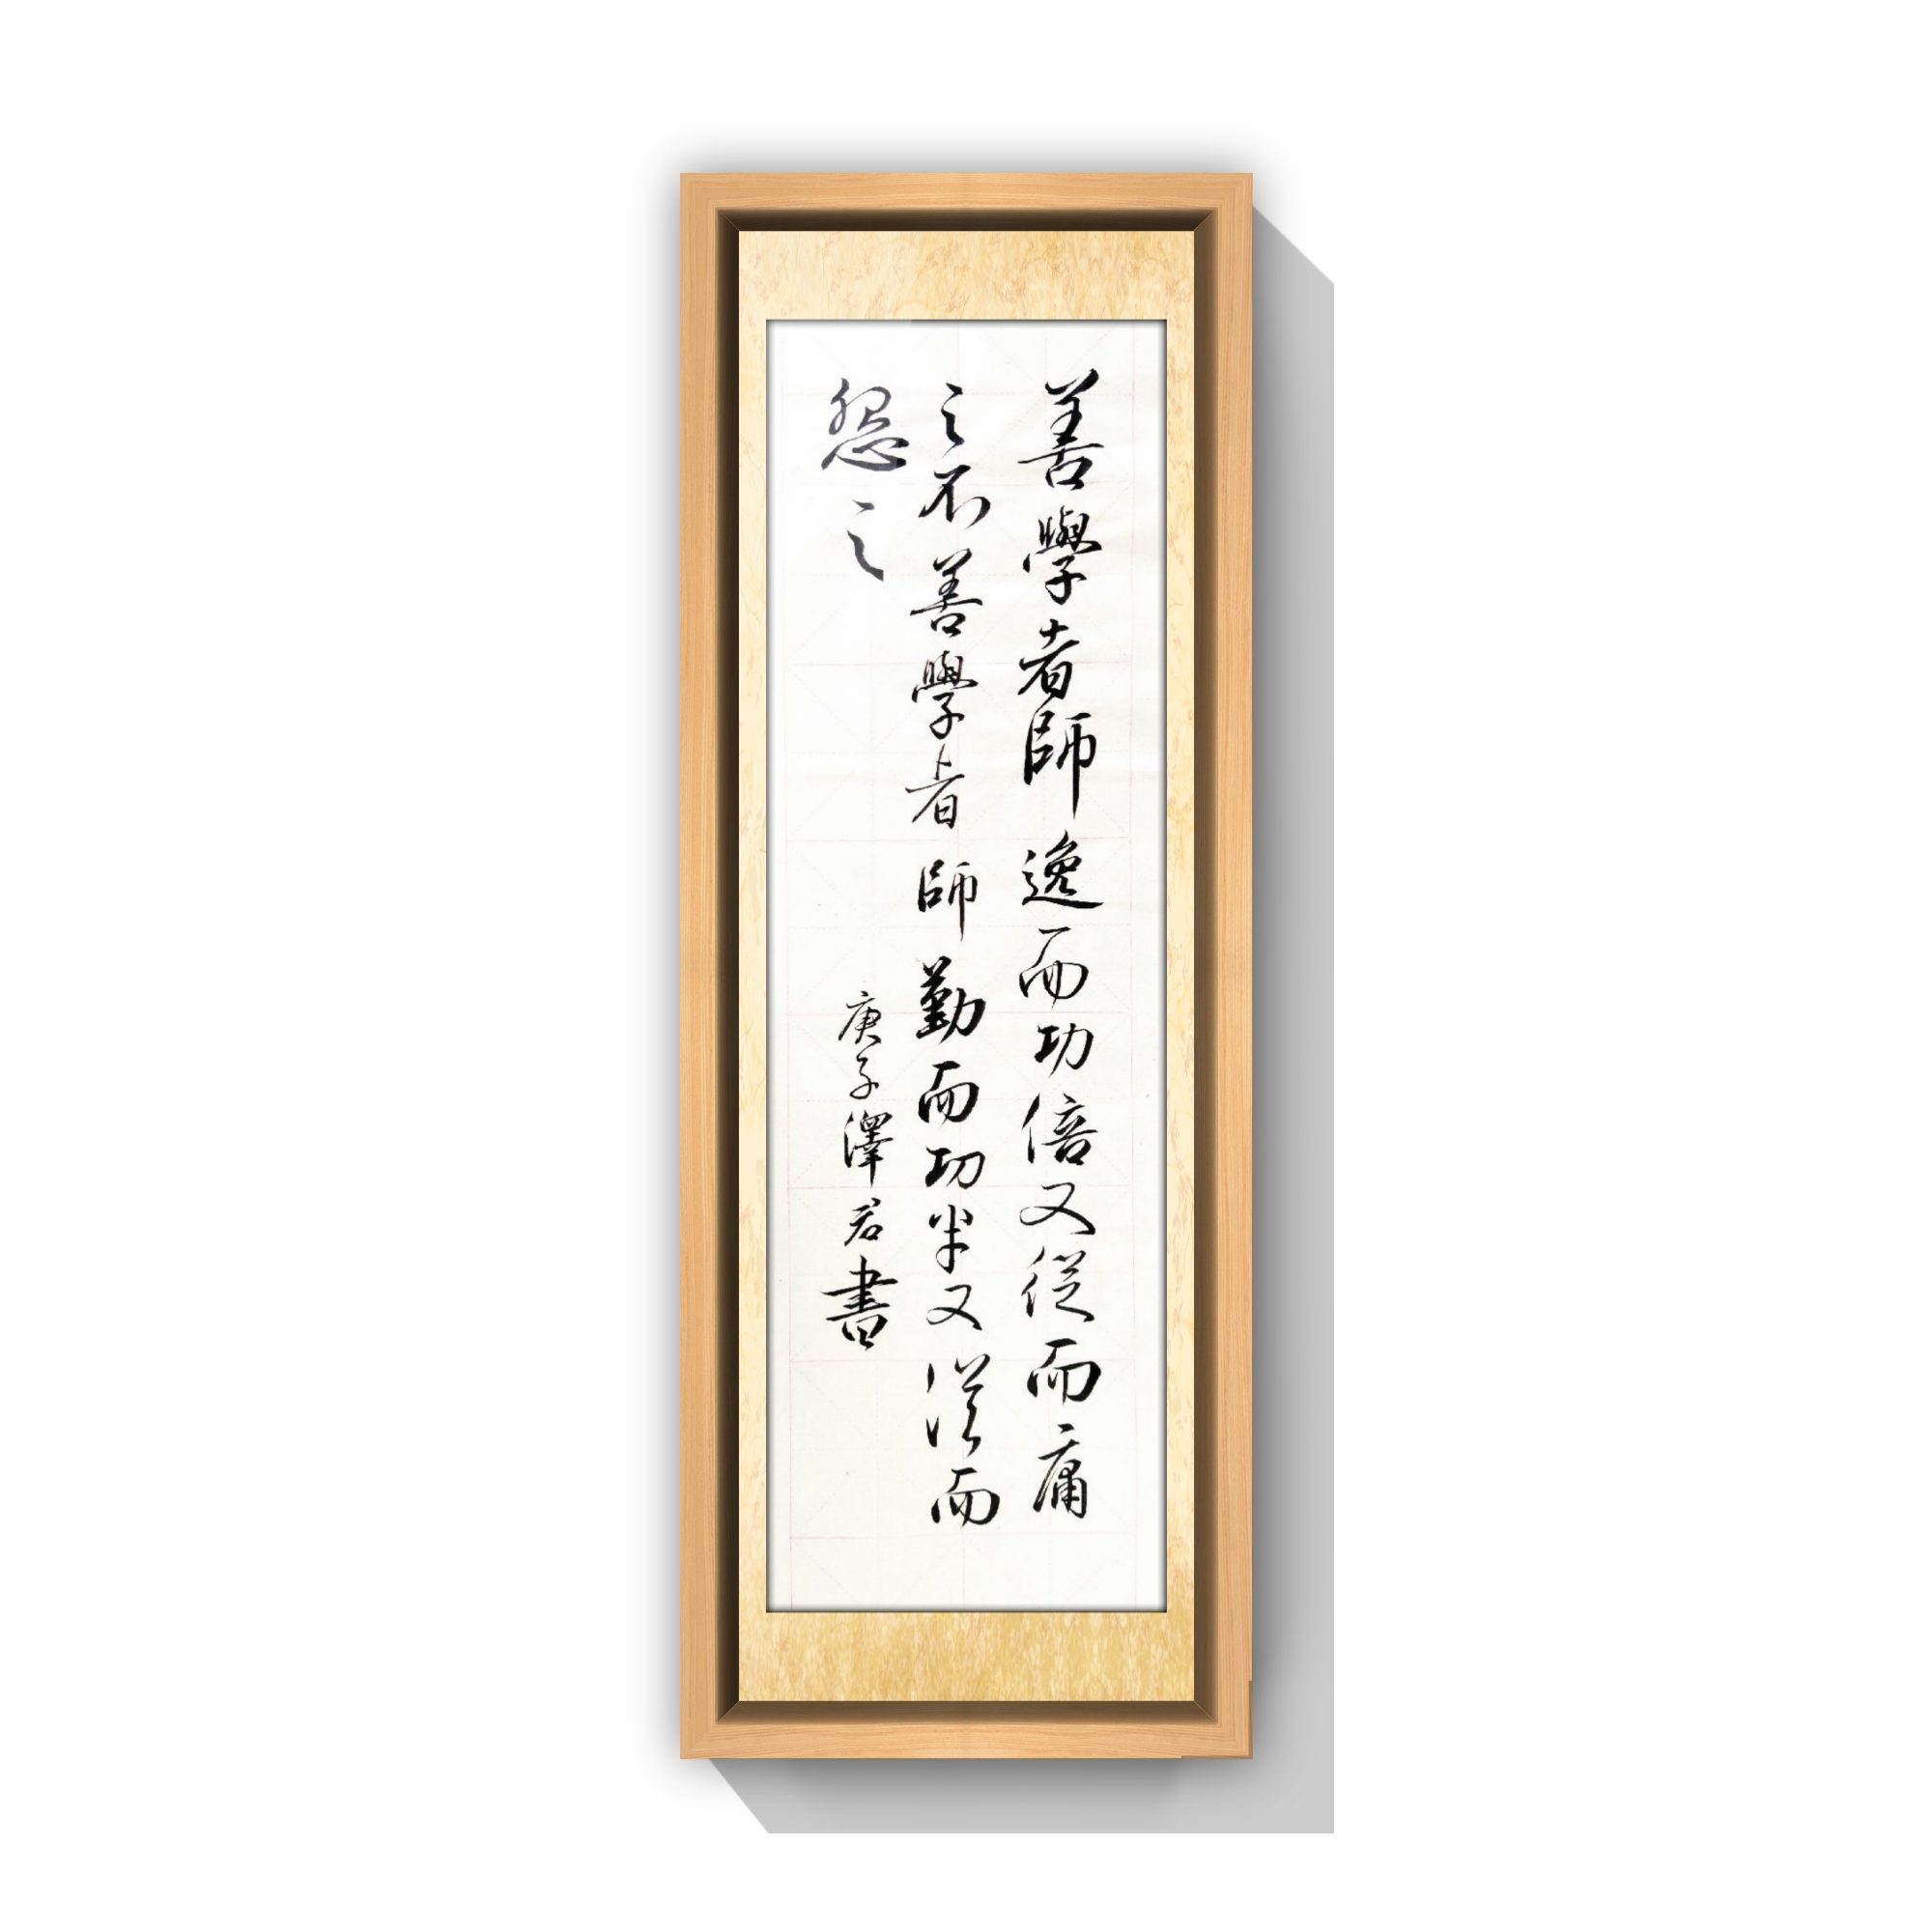 善學者師逸而功倍又從而庸
之不善學者師勤而功半又從而
怨之
庚子澤君書